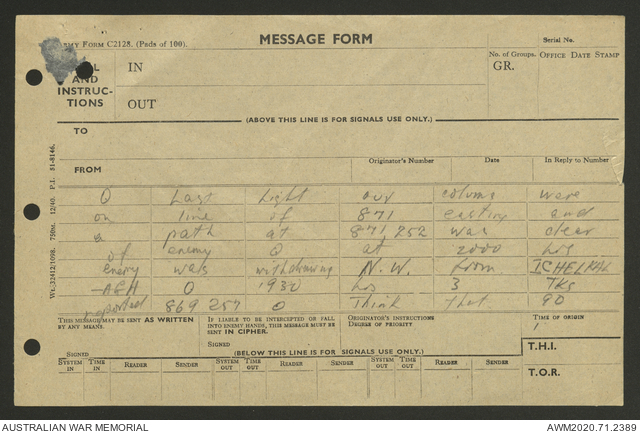 ARMY FORM C2128. (Pads of 100).
MESSAGE FORM
Serial No.
AND INSTRUCTIONS
IN
No. of Groups.
GR.
OFFICE DATE STAMP
OUT
(ABOVE THIS LINE IS FOR SIGNALS USE ONLY.)
TO
FROM
Originator's Number
Date
In Reply to Number
O Last Light our column were
on line of 871 easting and
a path at 871 252 was clear
of enemy O at 2000 hrs
enemy was withdrawing N.W. from
O 1930 hrs 3 TKs
reported 869 257 O Think that 90
THIS MESSAGE MAY BE SENT AS WRITTEN BY ANY MEANS.
IF LIABLE TO BE INTERCEPTED OR FALL INTO ENEMY HANDS, THIS MESSAGE MUST BE SENT IN CIPHER.
ORIGINATOR'S INSTRUCTIONS
DEGREE OF PRIORITY
TIME OF ORIGIN
SIGNED
SIGNED
(BELOW THIS LINE IS FOR SIGNALS USE ONLY.)
T.H.I.
SYSTEM IN TIME IN READER SENDER SYSTEM OUT TIME OUT READER SENDER SYSTEM OUT TIME OUT READER SENDER
T.O.R.
Wt. 32412/1098. 750m. 12/40. P.I. 51-8146.
AUSTRALIAN WAR MEMORIAL
AWM2020.71.2389